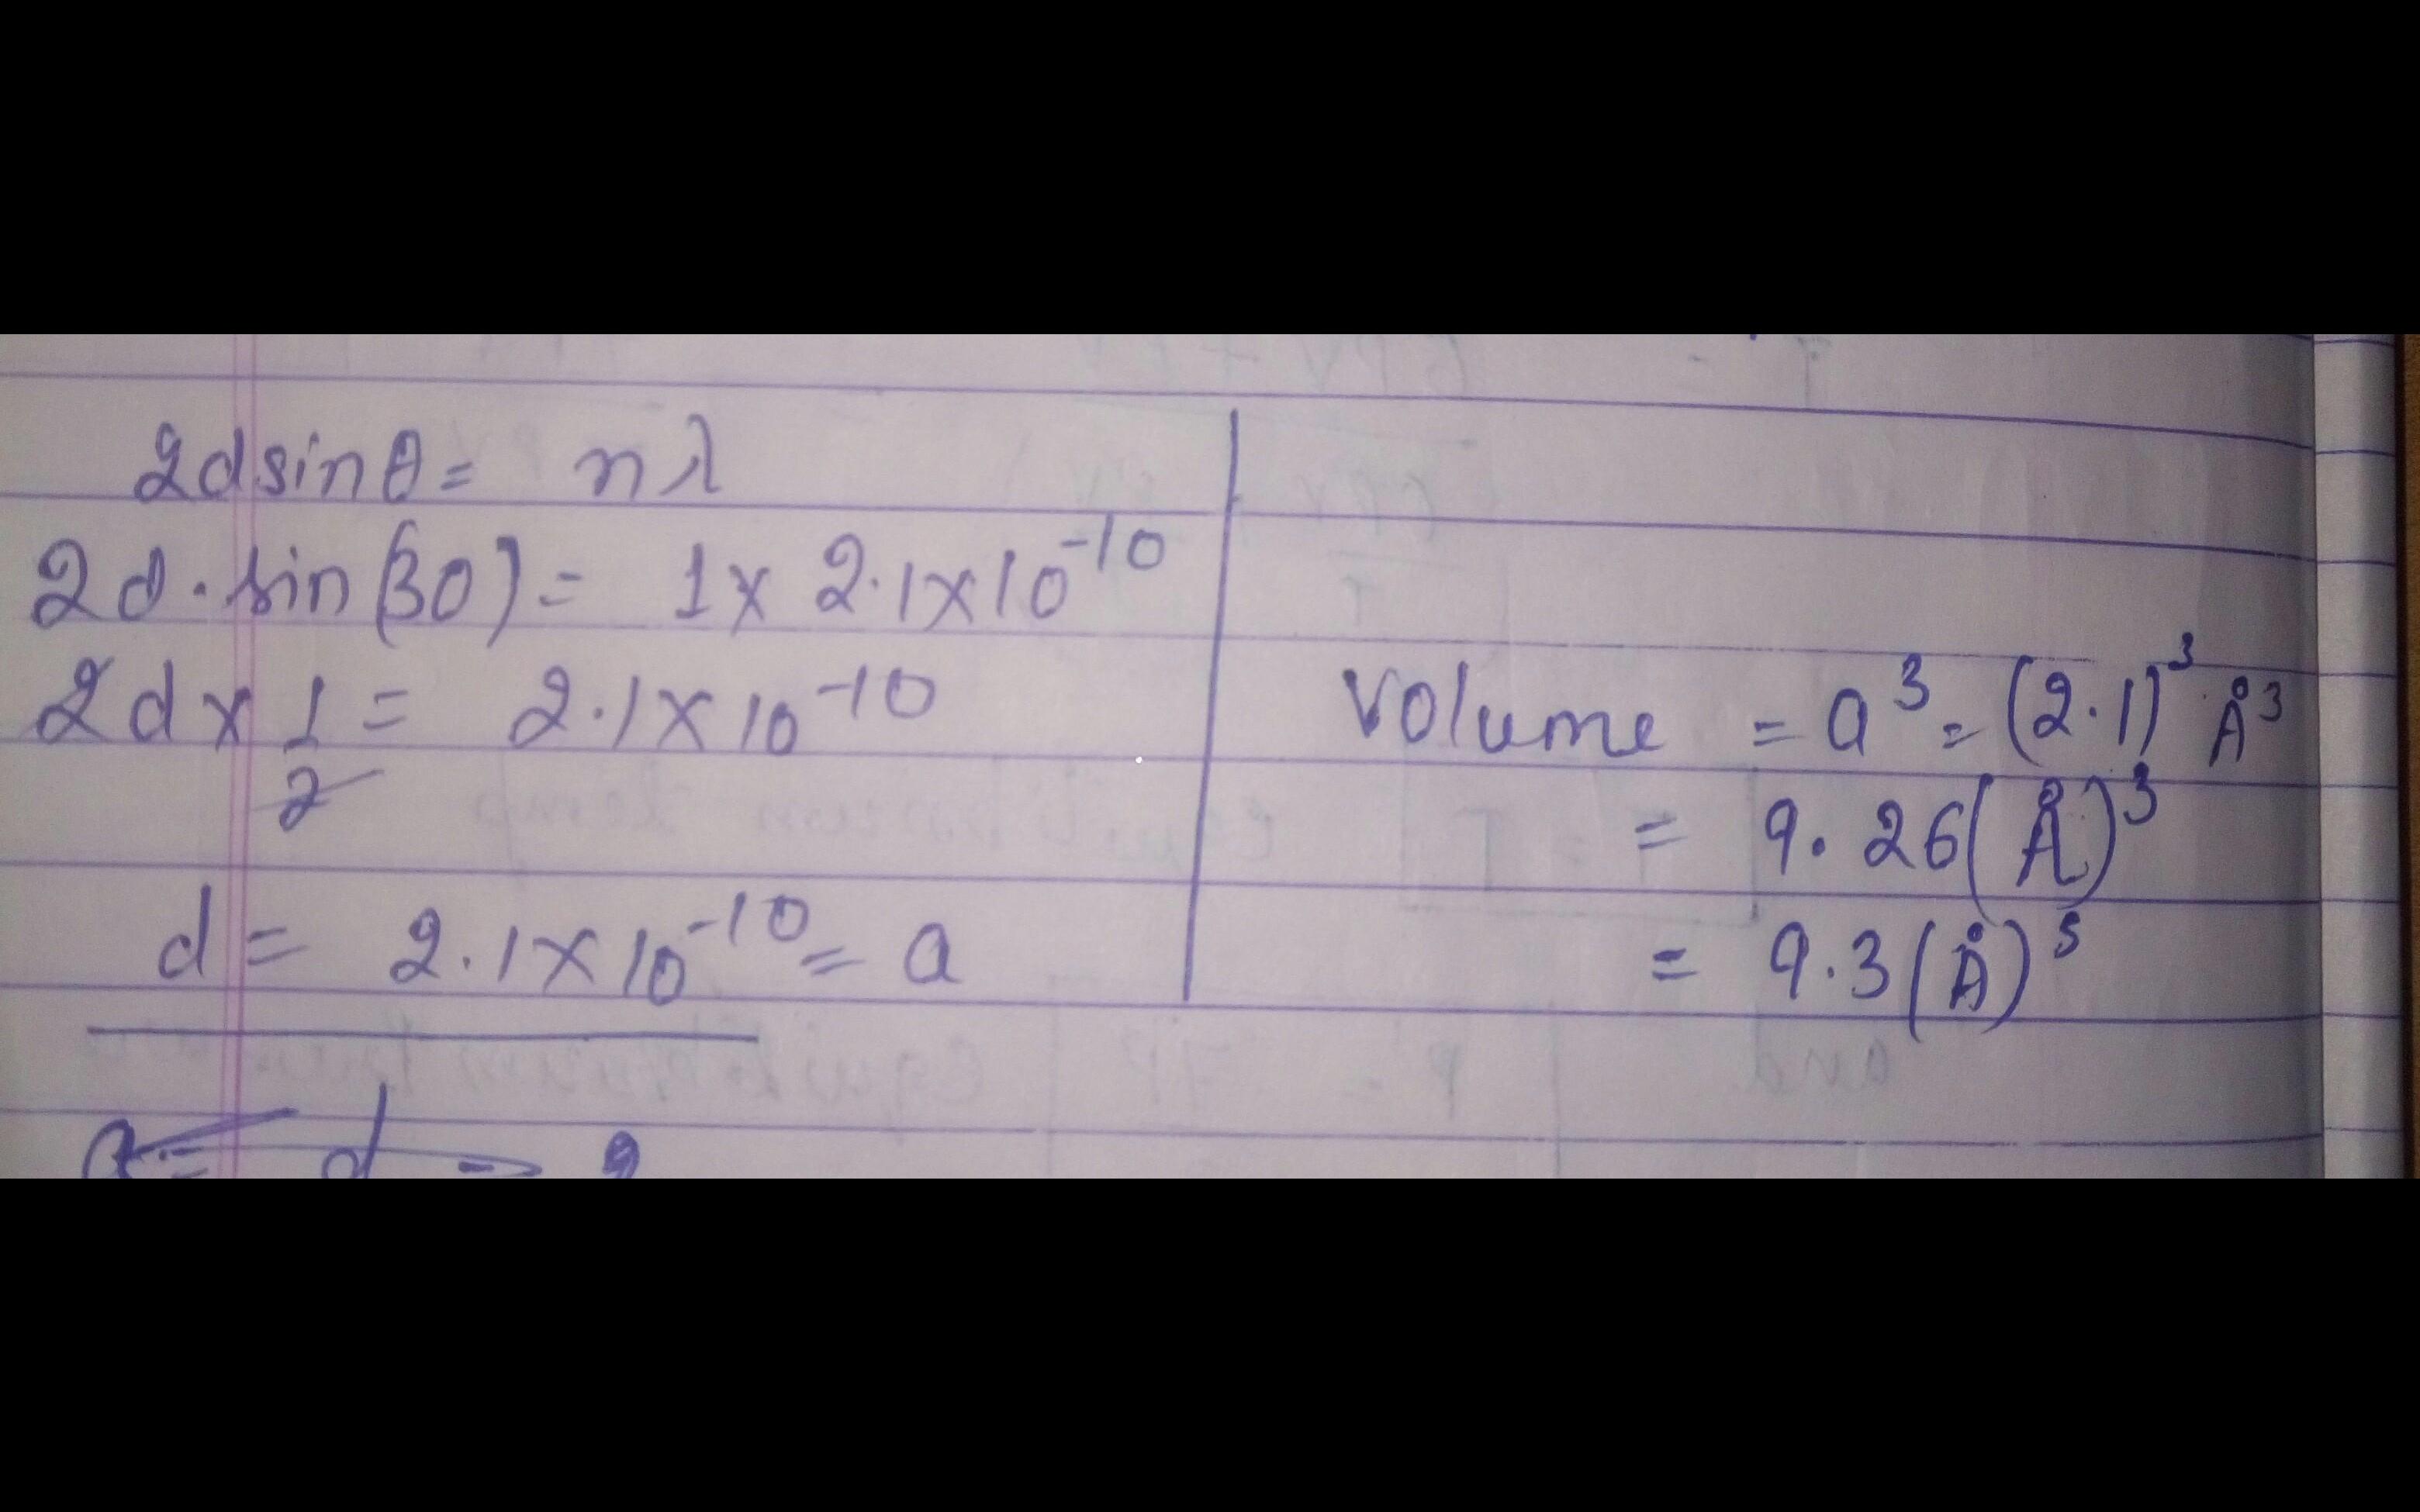 2d sin θ = nλ
2d · sin(30) = 1 × 2.1 × 10⁻¹⁰
2d × 1/2 = 2.1 × 10⁻¹⁰
d = 2.1 × 10⁻¹⁰ = a
Volume = a³ = (2.1)³ Å³
= 9.26 (Å)³
= 9.3 (Å)³